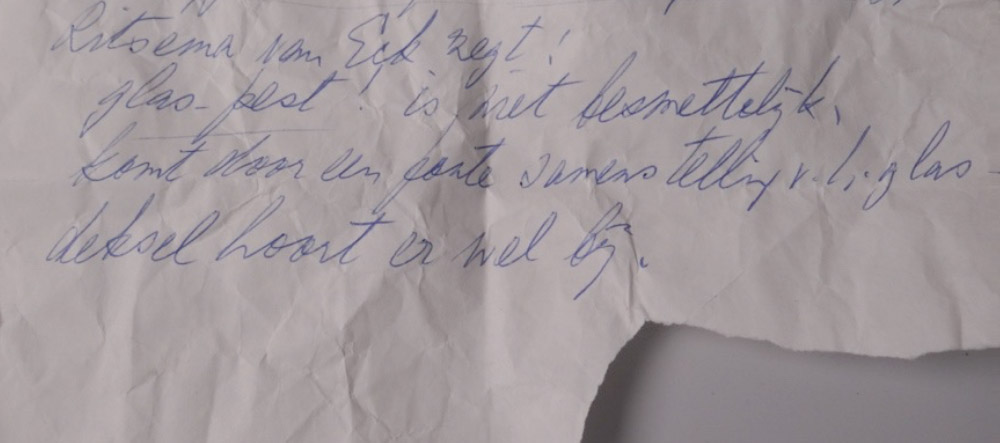 Ritsema van Eck zegt!
glas-pest! is niet besmettelijk,
komt door een foute samenstelling v.h. glas -
deksel hoort er wel bij.